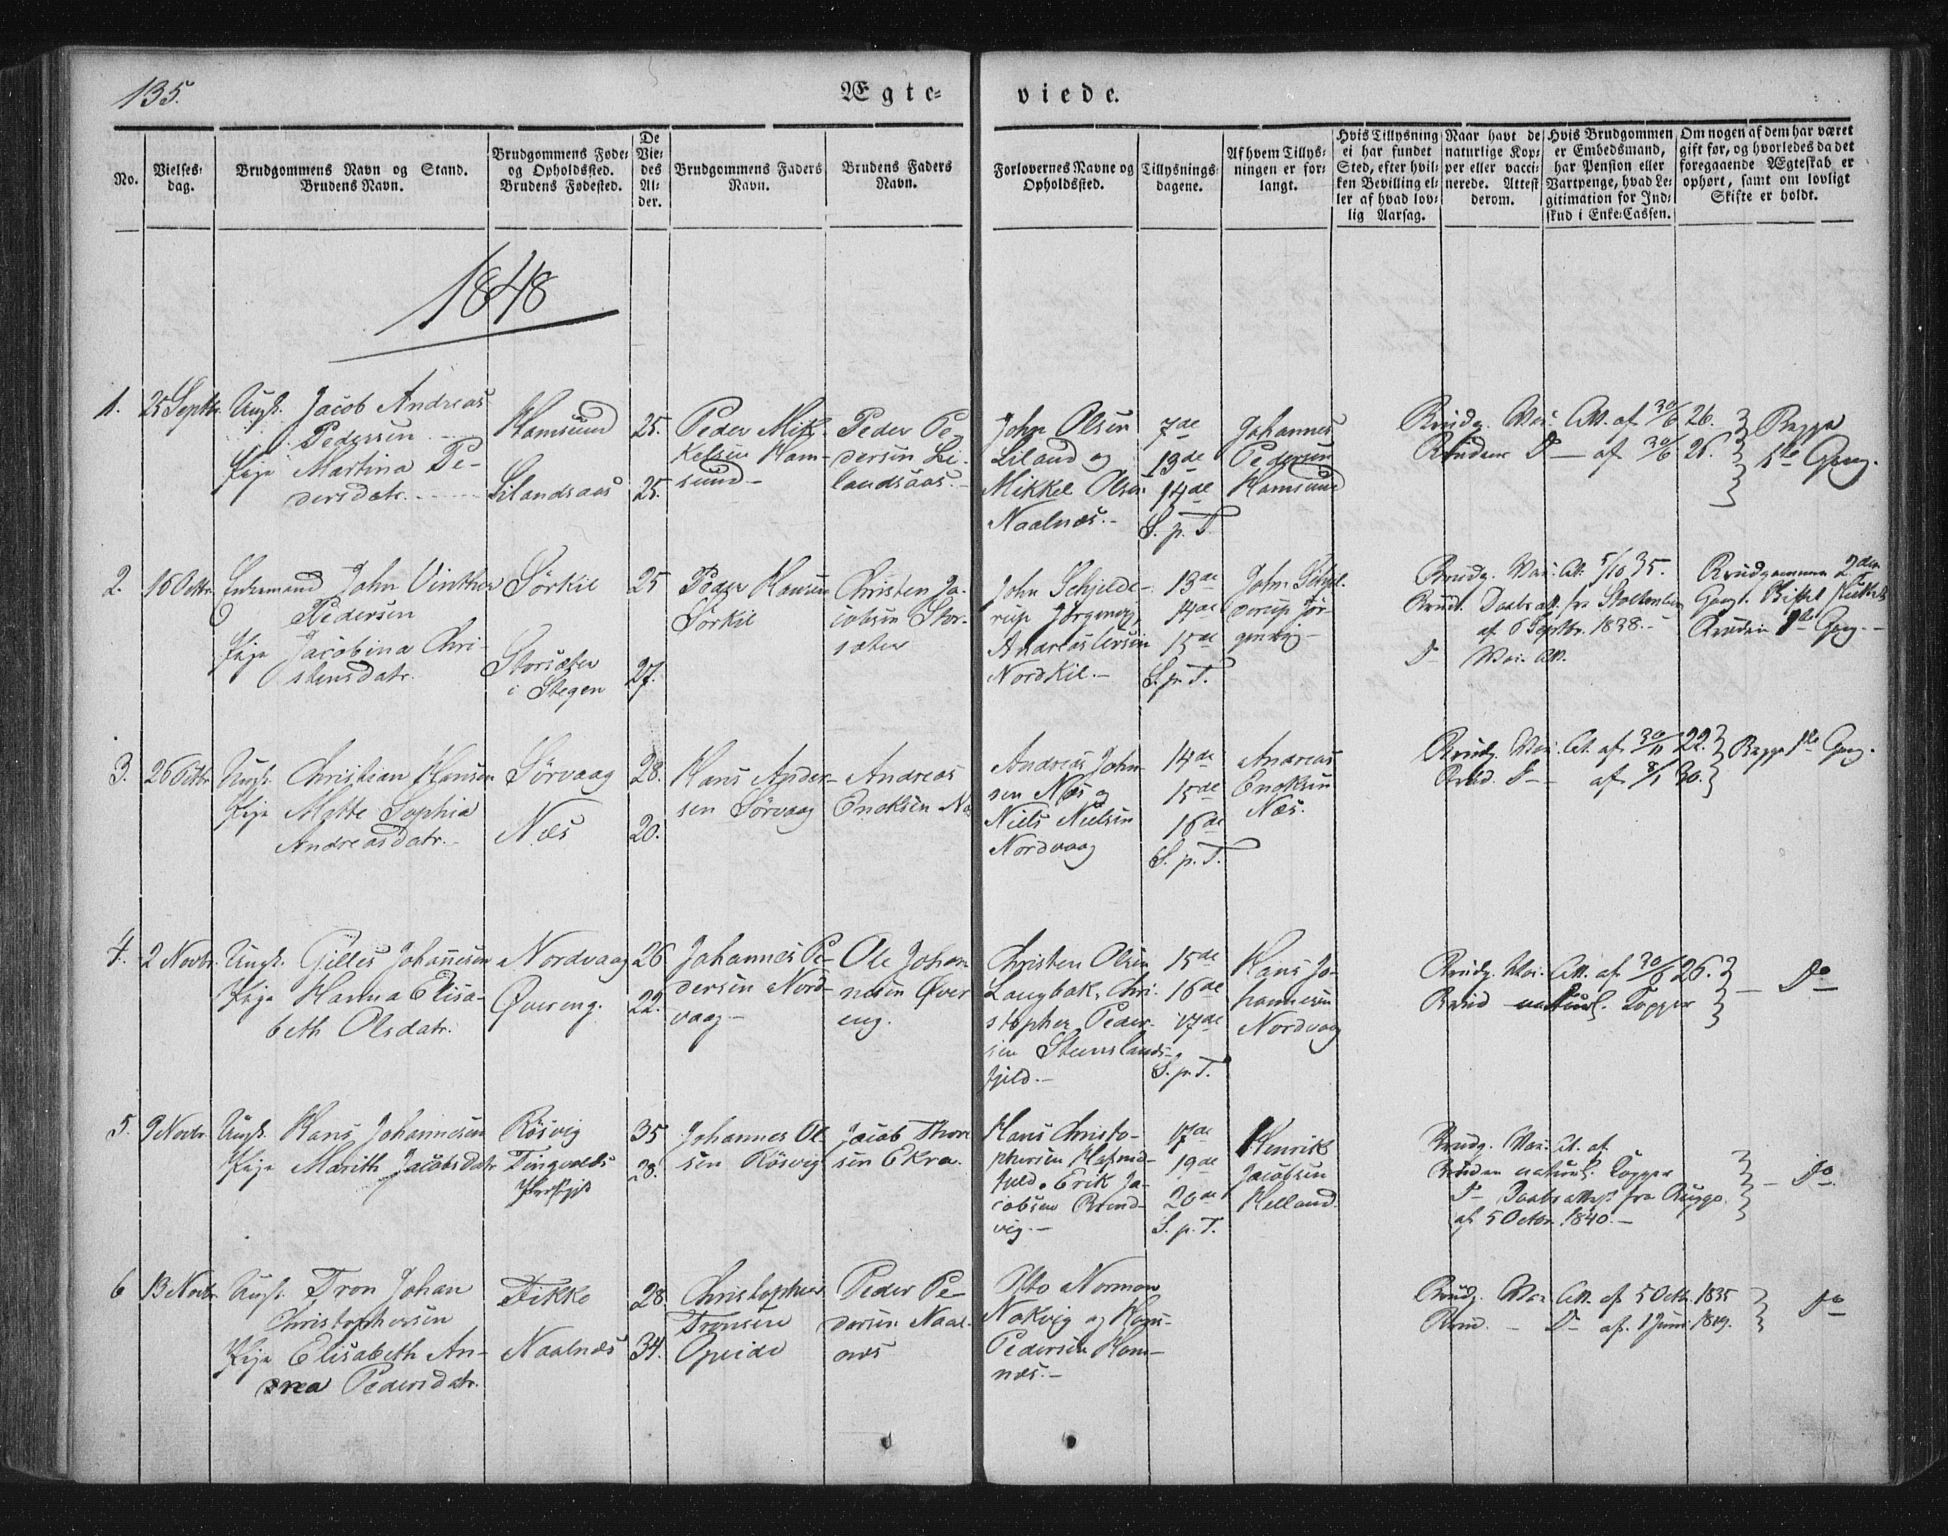 135.
Ægte-
viede.
No.
Vielses-
dag.
Brudgommens Navn og Stand.
Brudens Navn.
Brudgommens Føde-
og Opholdssted.
Brudens Fødested.
De
Vie-
des
Al-
der.
Brudgommens Faders
Navn.
Brudens Faders
Navn.
Forlovernes Navne og
Opholdssted.
Tillysnings-
dagene.
Af hvem Tillys-
ningen er for-
langt.
Hvis Tillysning
ei har fundet
Sted, efter hvil-
ken Bevilling el-
ler af hvad lov-
lig Aarsag.
Naar havt de
naturlige Kop-
per eller vacci-
nerede. Attest
derom.
Hvis Brudgommen
er Embedsmand,
har Pension eller
Vartpenge, hvad Le-
gitimation for Ind-
skud i Enke-Cassen.
Om nogen af dem har været
gift før, og hvorledes da det
foregaaende Ægteskab er
ophørt, samt om lovligt
Skifte er holdt.
1848
1.
25 Septbr.
Ungk. Jacob Andreas
Pedersen
Pige Martina Pe-
dersdatr.
Hamsund
Lilandsaas
25.
25.
Peder Mik-
kelsen Ham-
sund
Peder Pe-
dersen Li-
landsaas.
John Olsen
Liland og
Mikkel Olsen
Naalnæs.
7de
13de
14de
S. p. T.
Johannes
Pedersen
Hamsund
Brudg. Vac. Att. af 30/6 26.
Bruden D— af 30/6 26.
Begge
1ste Gang.
2.
16 Octbr.
Enkemand John Vinther
Pedersen
Pige Jacobina Chri-
stensdatr.
Sørkil
Storsæter
i Stegen
25
27.
Peder Hansen
Sørkil
Christen Ja-
cobsen Stor-
sæter
John Schjelde-
rup Jørgensen,
Andreas Iversen
Nordkil.
13de
14de
15de
S. p. T.
John Schjel-
derup Jør-
gensen
Brudg. Vac. At. 5/10 35.
Brud. Daabsatt. fra
af 6 Septbr. 1838.
D— Vac. Att.
Brudgommen 2den
Gang. Skiftet
Bruden 1ste Gang.
3.
26 Octbr.
Ungk. Christian Hansen
Pige Mette Sophia
Andreasdatr.
Sørvaag
Næs
28.
20.
Hans Ander-
sen Sørvaag
Andreas
Enoksen Næs
Andreas John-
sen Næs og
Niels Nielsen
Nordvaag
14de
15de
16de
S. p. T.
Andreas
Enoksen
Næs.
Brudg. Vac. At. af 30/11 22.
Brud. D— af 8/1 30.
Begge 1ste Gang.
4.
2 Novbr.
Ungk. Gilles Johannesen
Pige Hanna Elisa-
beth Olsdatr.
Nordvaag
Øvereng.
26
22.
Johannes Pe-
dersen Nord-
vaag
Ole Johan-
nesen Øver-
eng.
Christen Olsen
Langbak, Chri-
stopher Peder-
sen Steenslands-
fjeld.
15de
16de
17de
S. p. T.
Hans Jo-
hannesen
Nordvaag
Brudg. Vac. Att. af 30/6 26.
Brud naturl. Kopper
Do
5.
9 Novbr.
Ungk. Hans Johannesen
Pige Marith Jacobsdatr
Røsvig
Tingvolds
Præstgjeld
35
28.
Johannes Ol-
sen Røsvig
Jacob Thore-
sen Ekra.
Hans Christo-
phersen Hafnes-
fjeld. Erik Ja-
cobsen Brend-
vig.
17de
19de
20de
S. p. T.
Henrik
Jacobsen
Helland.
Brudg. Vac. At. af
Bruden naturl. Kopper
D— Daabsattest fra
af 5 Octbr. 1840.
Do
6
13 Novbr.
Ungk. Tron Johan
Christophersen
Pige Elisabeth An-
drea Pedersdatr.
Fikke
Naalnæs
28.
34.
Christopher
Tronsen
Opeide
Peder Pe-
dersen Naal-
næs
Otto Norman
Nakvig og Hans
Pedersen Ham-
næs.
Brudg. Vac. Att. af 5 Octb. 1835
Brud. — D— af 1 Juni 1819.
Do